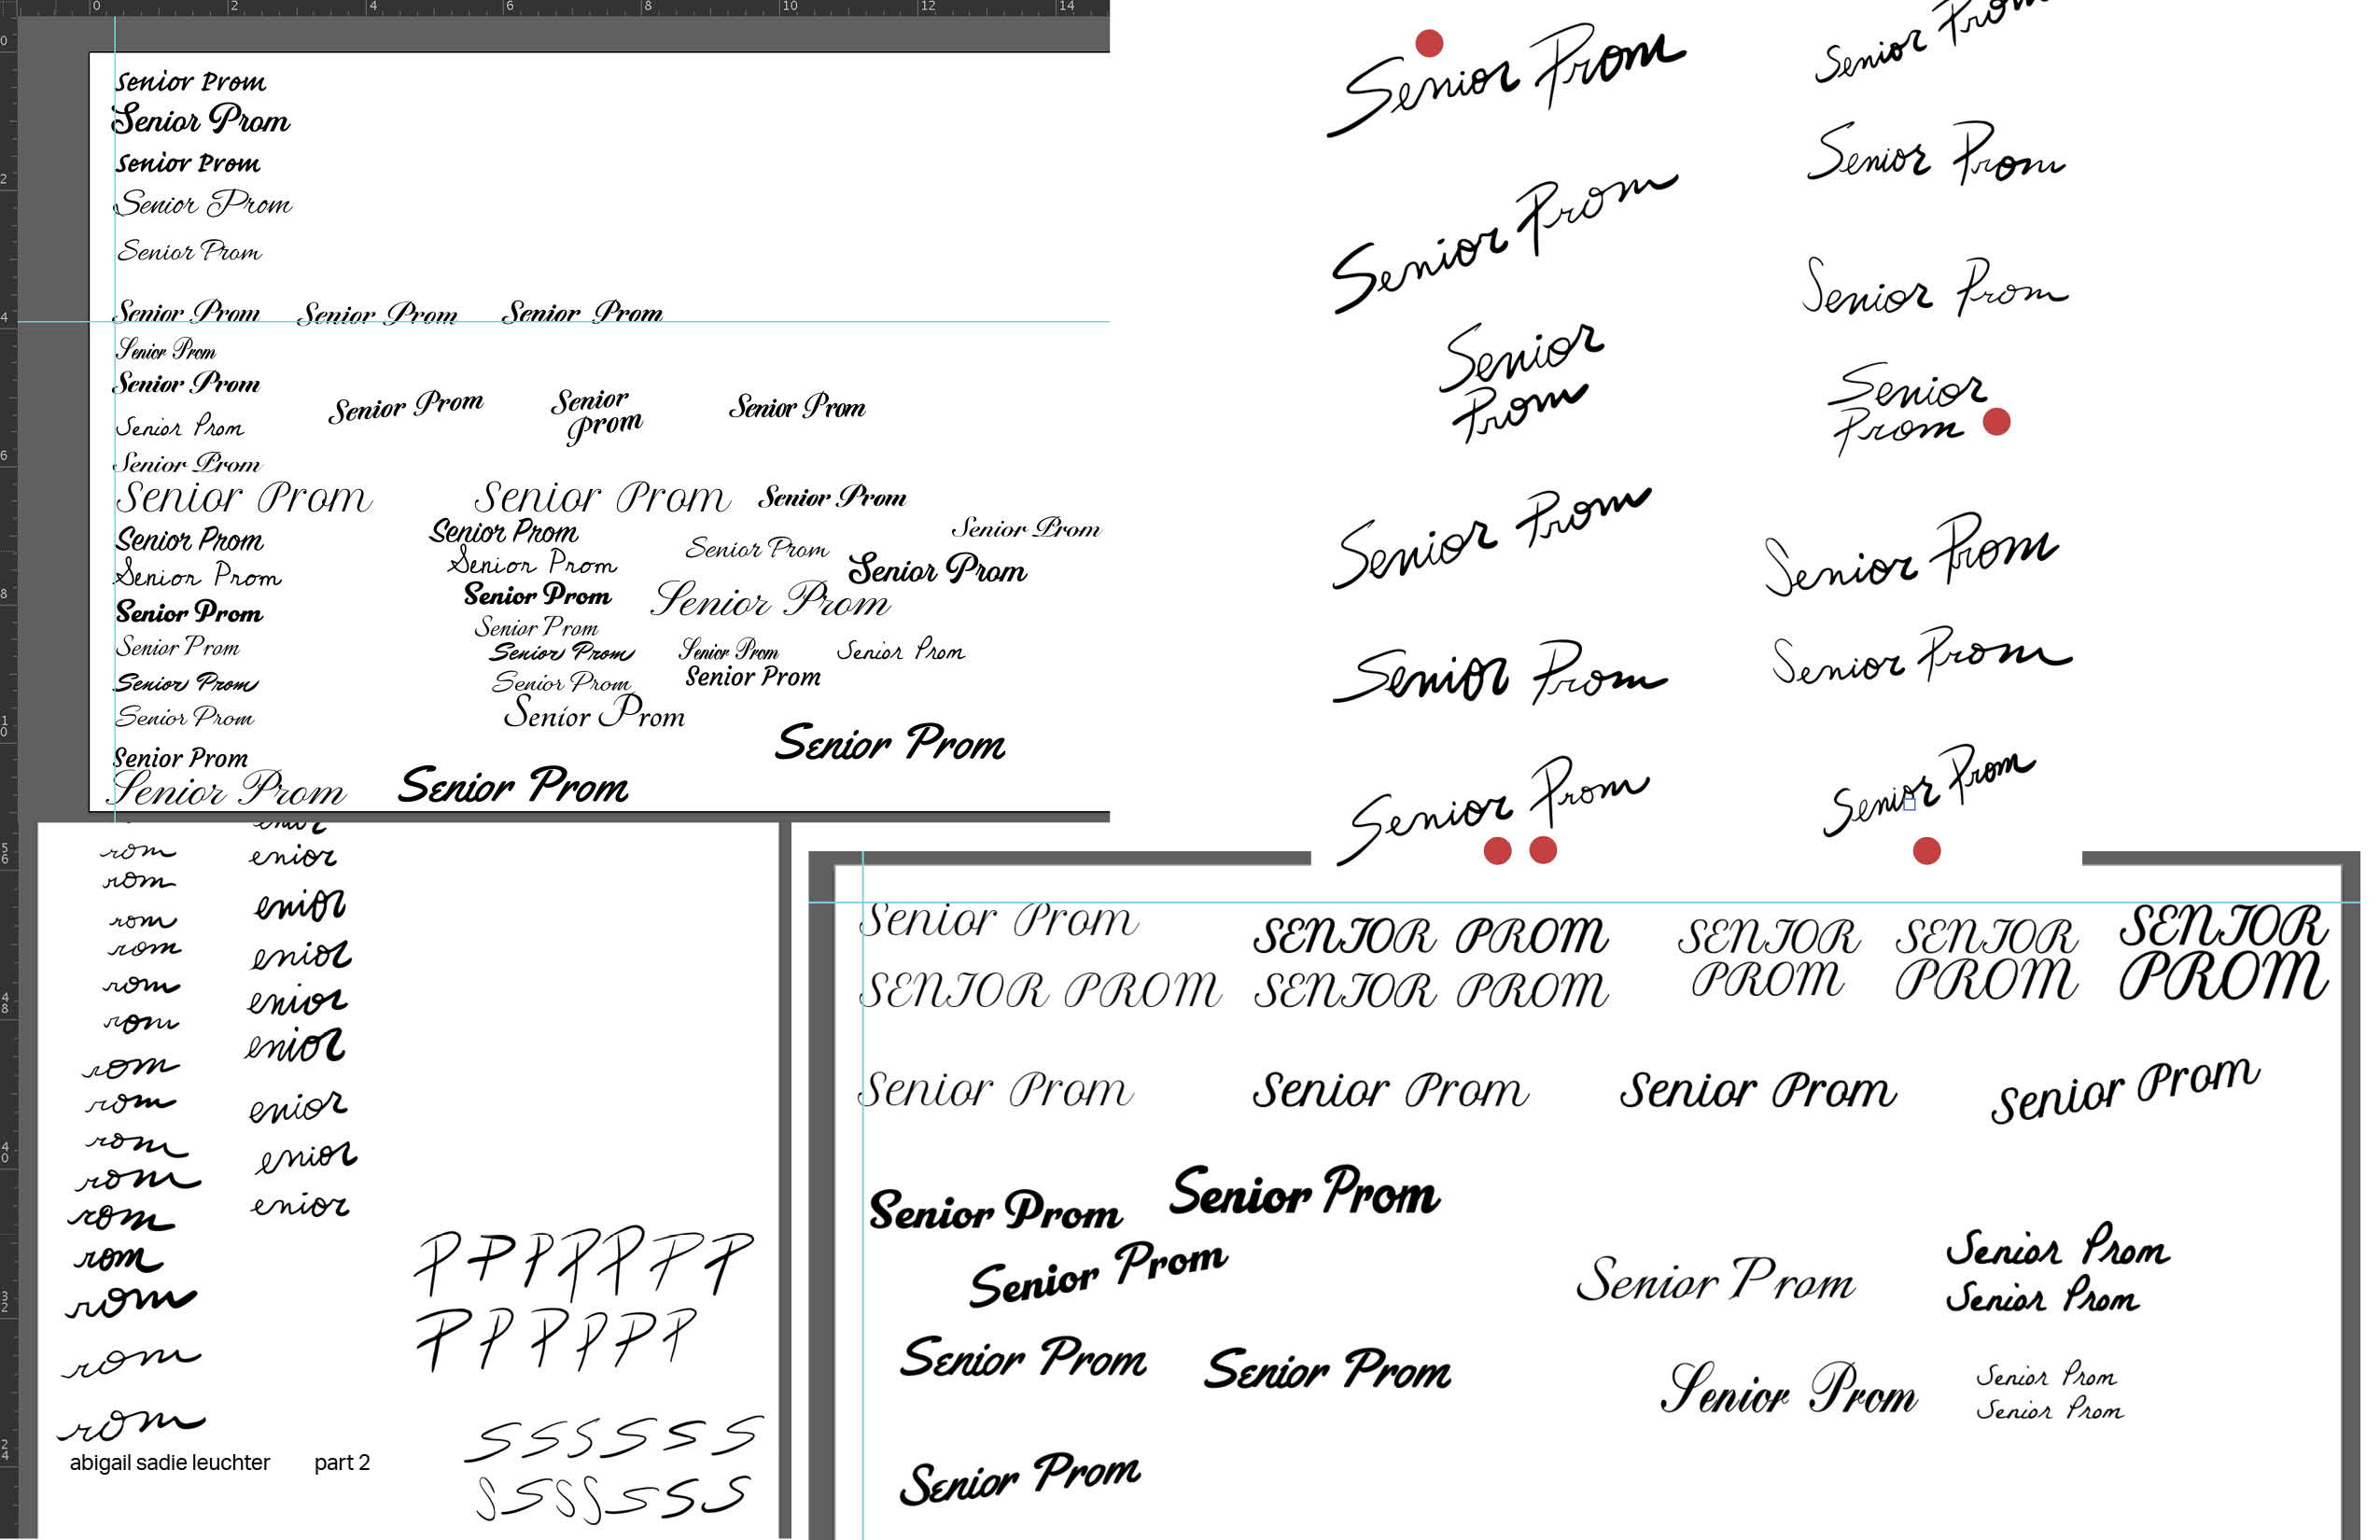 0 2 4 6 8 10 12 14
0
2
4
6
8
10
Senior Prom
Senior Prom
Senior Prom
Senior Prom
Senior Prom
Senior Prom Senior Prom Senior Prom
Senior Prom
Senior Prom
Senior Prom Senior Prom Senior Prom
Senior Prom
Senior Prom
Senior Prom Senior Prom Senior Prom
Senior Prom Senior Prom Senior Prom
Senior Prom Senior Prom Senior Prom Senior Prom
Senior Prom Senior Prom Senior Prom
Senior Prom Senior Prom
Senior Prom Senior Prom Senior Prom Senior Prom
Senior Prom Senior Prom
Senior Prom Senior Prom
Senior Prom
Senior Prom
Senior Prom Senior Prom
Senior Prom Senior Prom
Senior Prom Senior Prom
Senior Prom Senior Prom
Senior Senior
Prom Prom
Senior Prom Senior Prom
Senior Prom Senior Prom
Senior Prom Senior Prom
56
48
40
32
24
enior
rom enior
rom
rom enior
rom enior
rom enior
rom enior
rom
rom enior
rom enior
rom enior
rom
rom
rom
rom
rom
P P P P P P P
P P P P P P
S S S S S S
S S S S S S S
abigail sadie leuchter part 2
Senior Prom SENIOR PROM SENIOR SENIOR SENIOR
SENIOR PROM SENIOR PROM PROM PROM PROM
Senior Prom Senior Prom Senior Prom Senior Prom
Senior Prom Senior Prom
Senior Prom Senior Prom Senior Prom
Senior Prom
Senior Prom Senior Prom Senior Prom Senior Prom
Senior Prom
Senior Prom